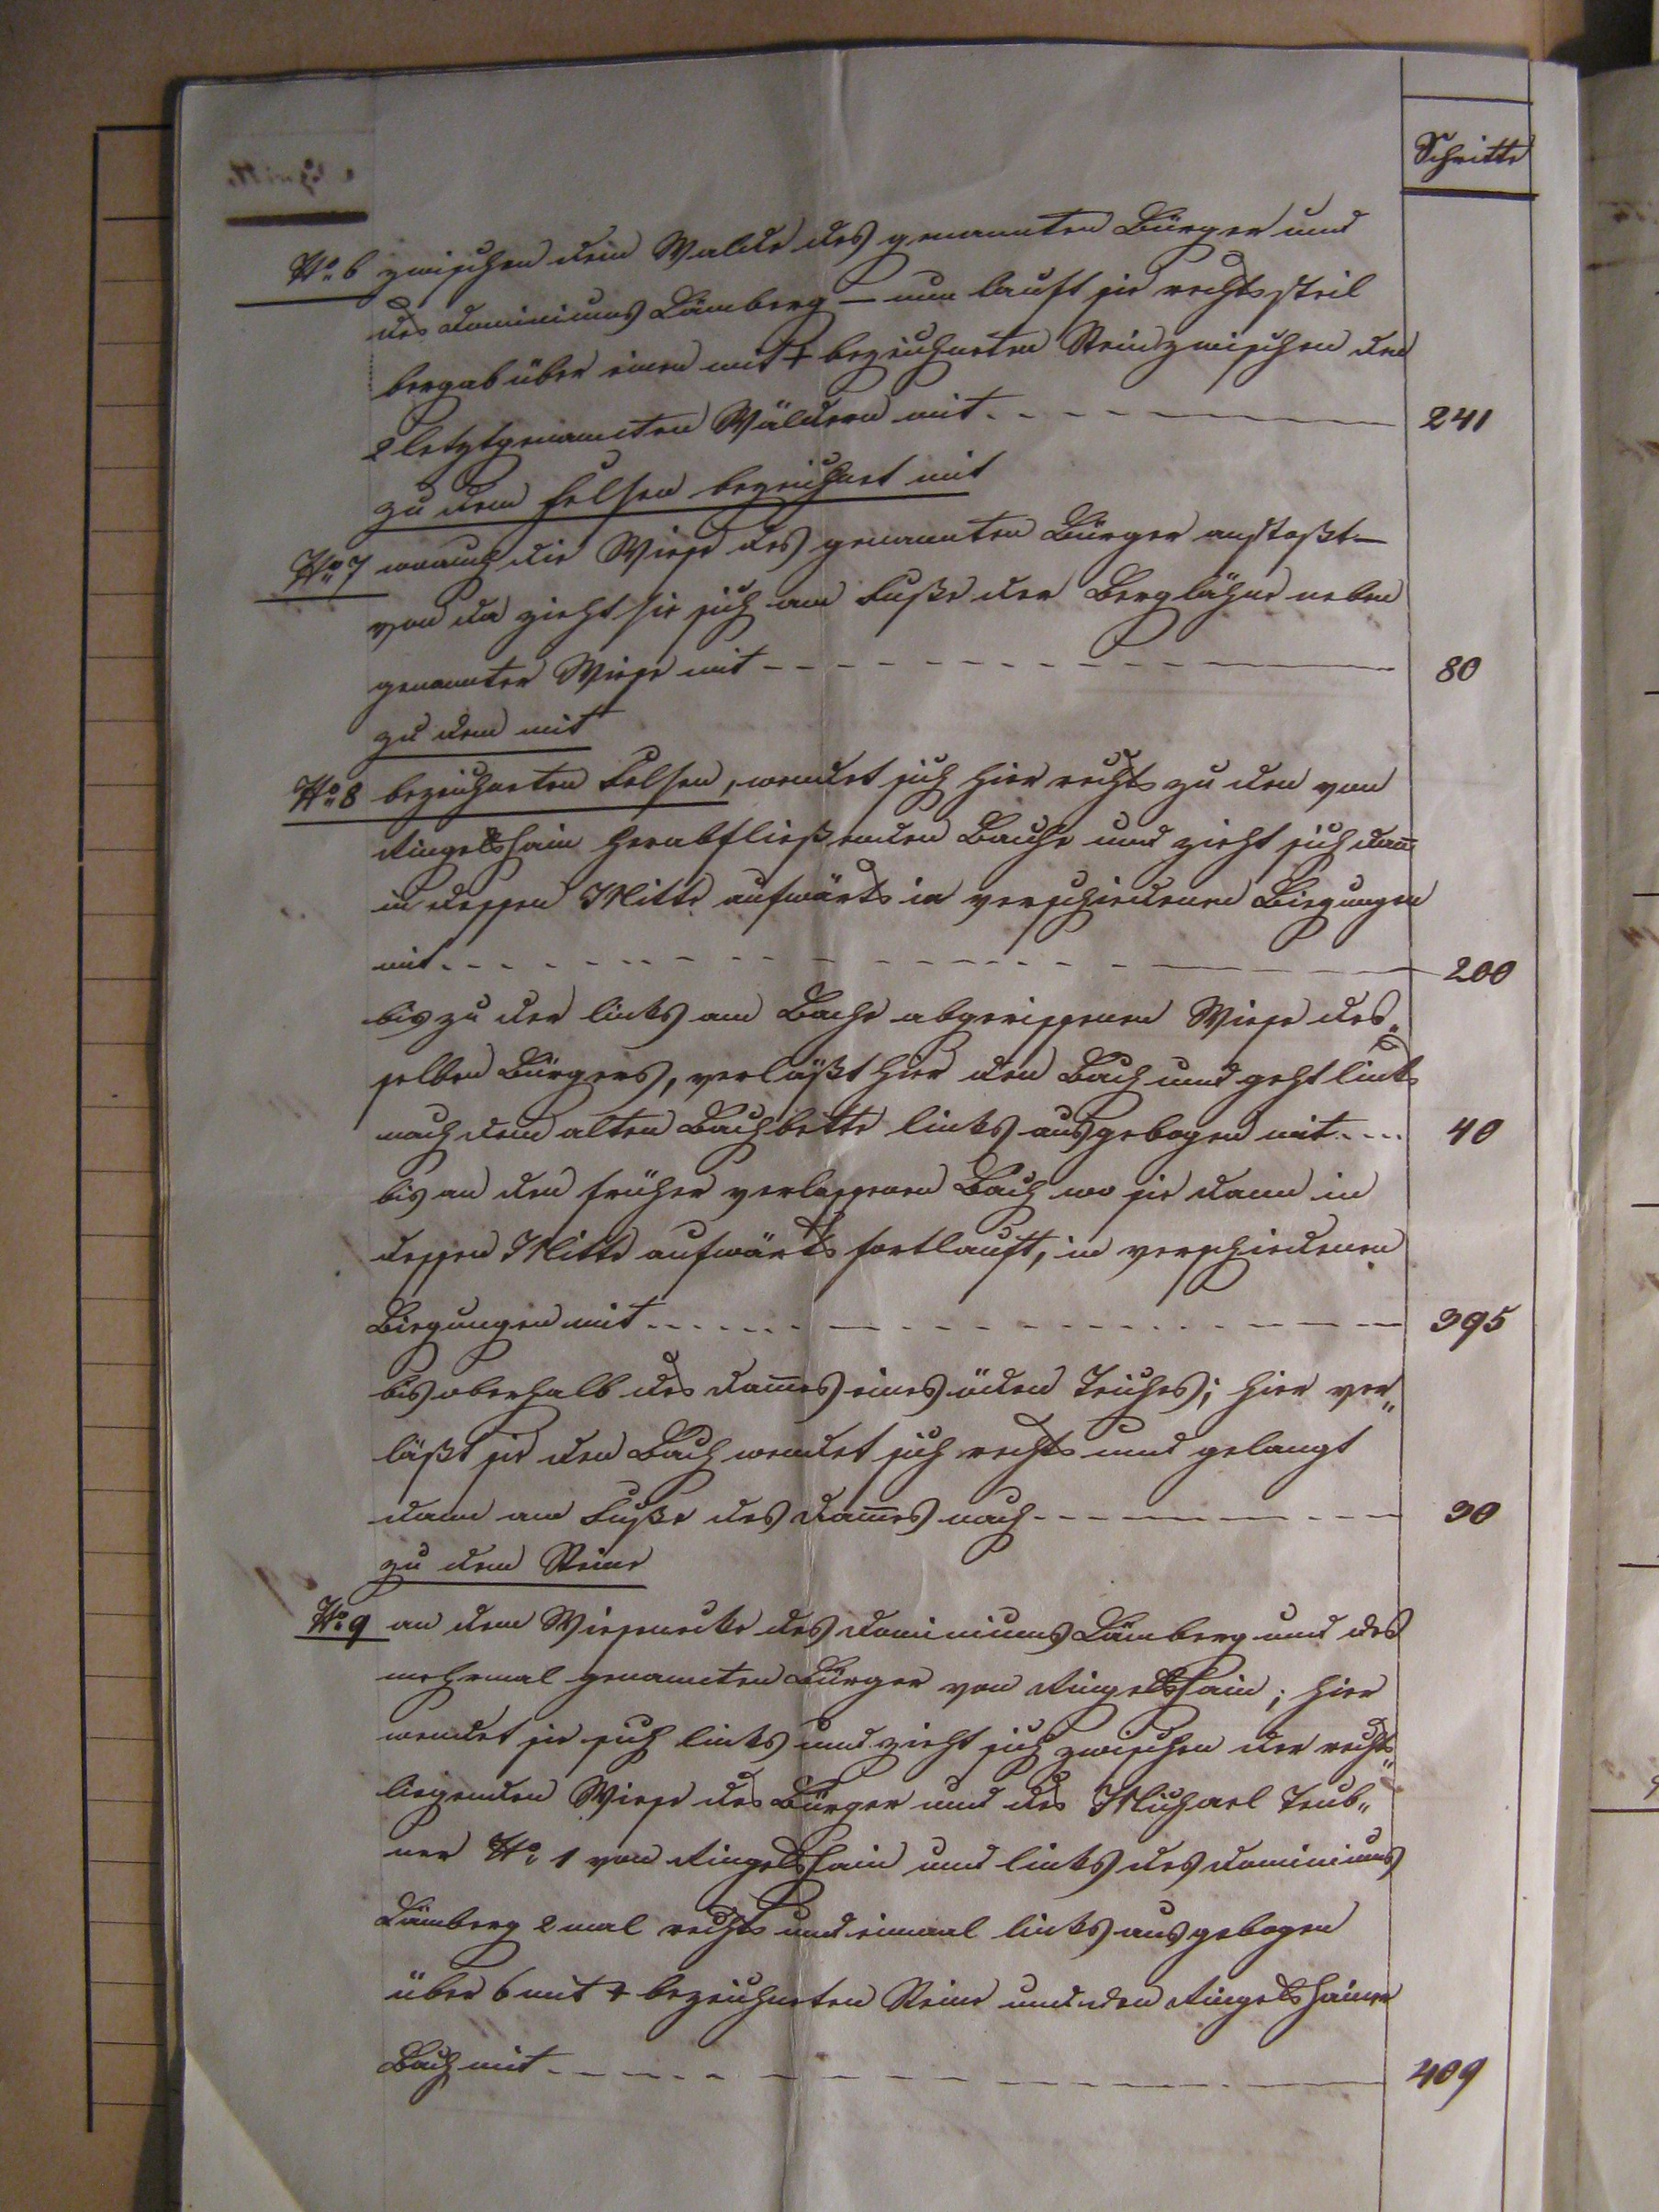 Schritte
No 6 zwischen dem Walde des genannten Bürger und
des Dominiums Lämberg – nun lauft sie rechts steil
bergab über einen mit + bezeichneten Stein zwischen den
2 letztgenannten Wäldern mit 241
zu dem Felsen bezeichnet mit
No 7 woran die Wiese des genannten Bürger anstoßt –
von da zieht sie sich am Fuße der Berglähne neben
genannter Wiese mit 80
zu dem mit
No 8 bezeichneten Felsen, wendet sich hier rechts zu den von
Ringelshain herabfließenden Bache und zieht sich dan̅
in dessen Mitte aufwärts in verschiedenen Biegungen
mit 200
bis zu der links am Bache abgerissenen Wiese des„
selben Bürgers, verläßt hier den Bach und geht links
nach dem alten Bachbette links ausgebogen mit 40
bis an den früher verlassenen Bach wo sie dann in
dessen Mitte aufwärts fortlauft, in verschiedenen
Biegungen mit 395
bis oberhalb des Dam̅es eines öden Teiches; hier ver„
läßt sie den Bach wendet sich rechts und gelangt
dann am Fuße des Dam̅es nach 30
zu dem Steine
No 9 an dem Wiesenecke des Dominiums Lämberg und des
mehrmal genannten Bürger von Ringelshain; hier
wendet sie sich links und zieht sich zwischen der rechts„
liegenden Wiese des Bürger und des Michael Teub„
ner No 1 von Ringelshain und links des Dominiums
Lämberg 2 mal rechts und einmal links ausgebogen
über 6 mit + bezeichneten Steine und den Ringelshainer
Bach mit 409